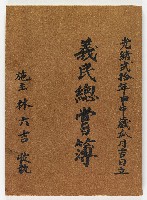 光緒貳拾年甲午歲瓜月吉日立
義民總嘗簿
施主林六吉 收執